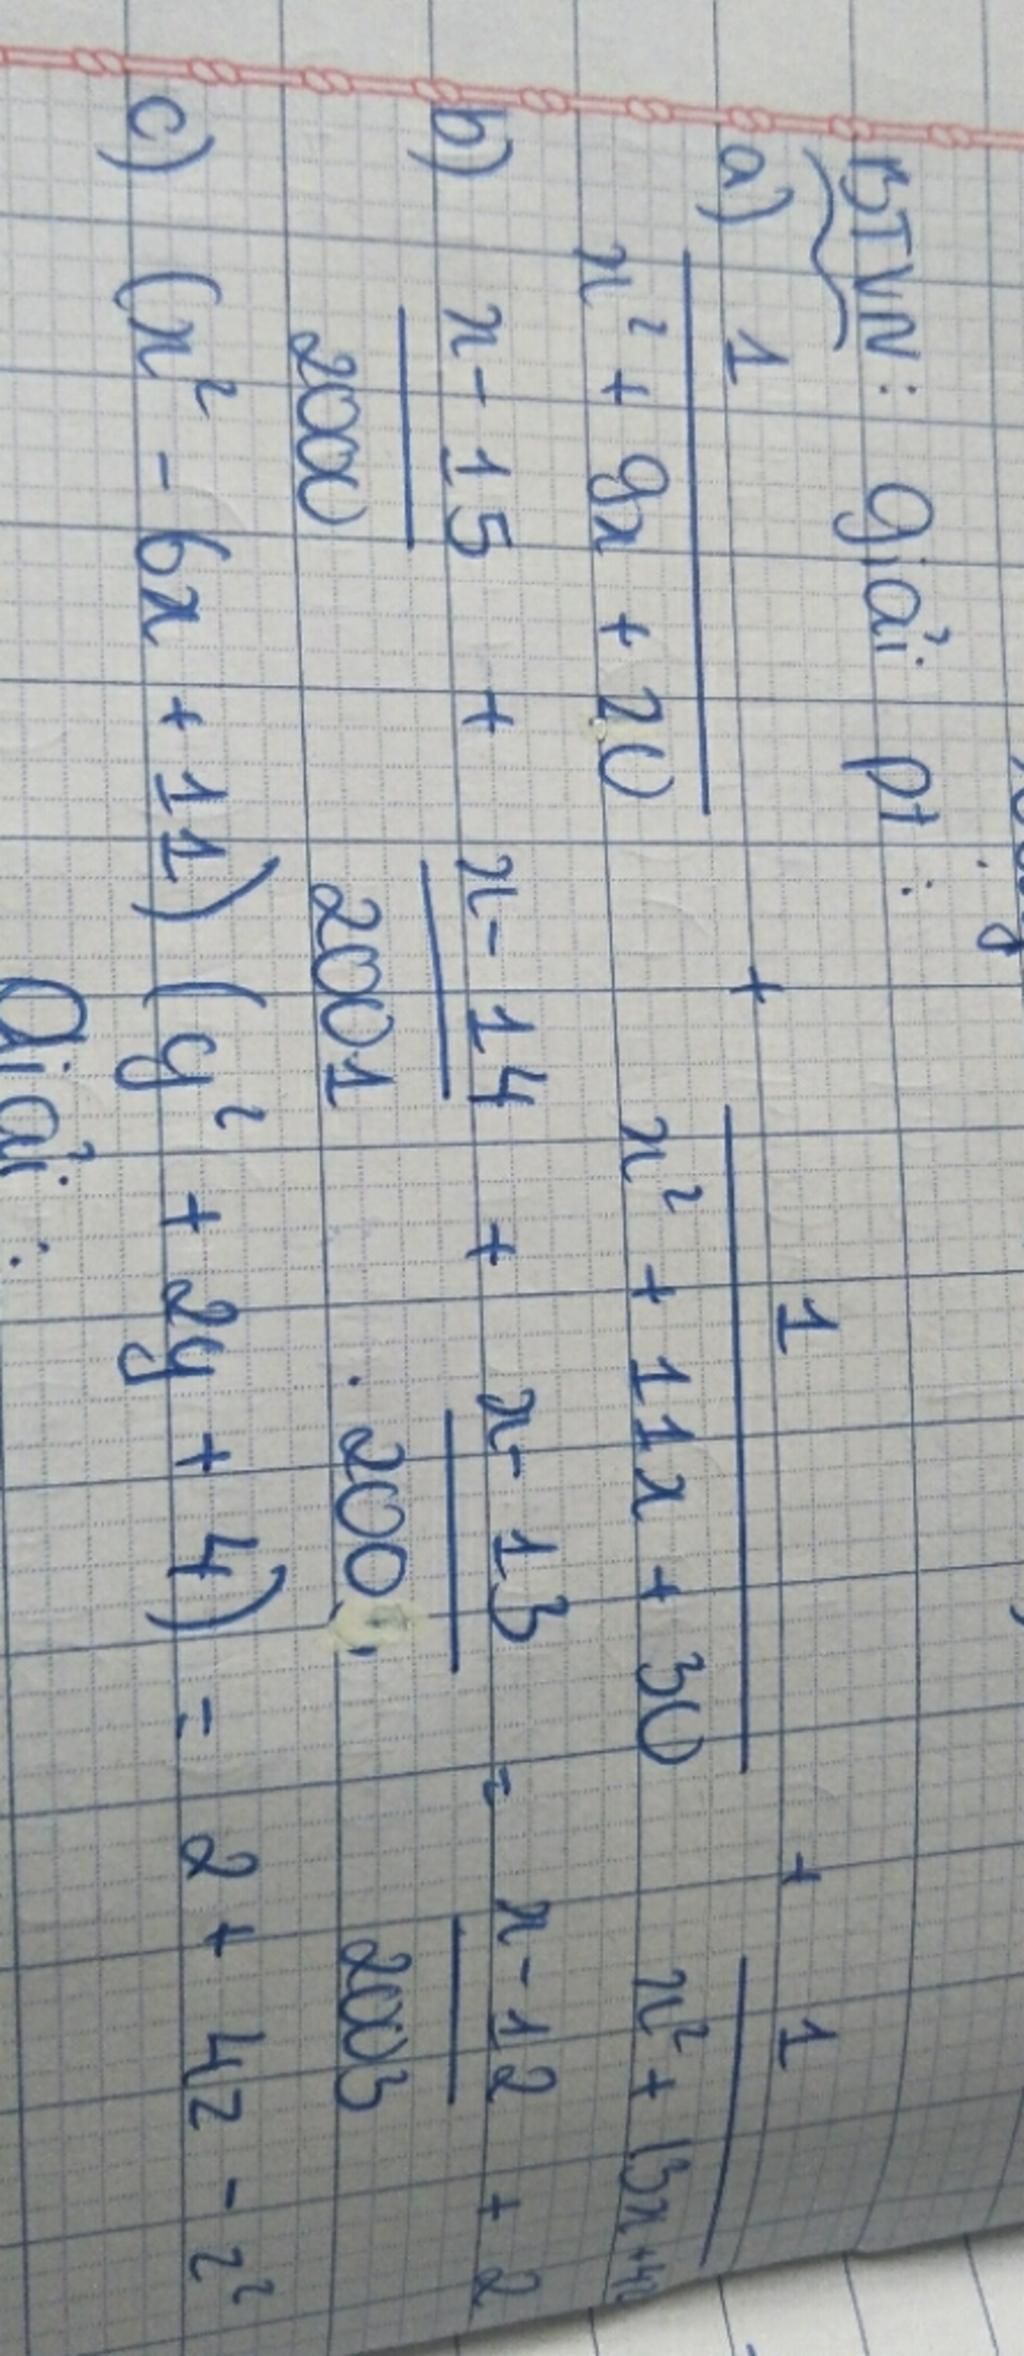 BTVN: Giải pt:
a) 1/(x² + 9x + 20) + 1/(x² + 11x + 30) + 1/(x² + 13x + 42
b) (x - 15)/2000 + (x - 14)/2001 + (x - 13)/200 = (x - 12)/2003 + 2
c) (x² - 6x + 11) (y² + 2y + 4) = 2 + 4z - z²
Giải: